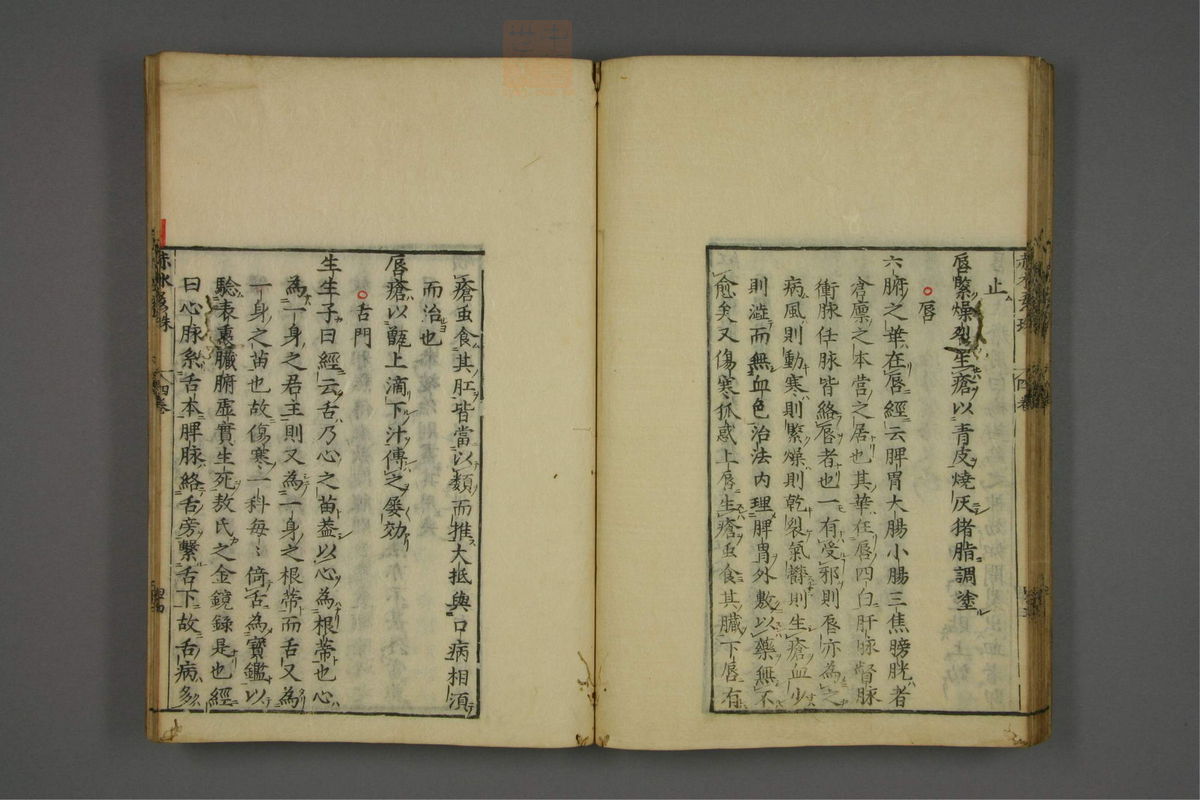 止
唇緊燥裂生瘡以青皮燒灰猪脂調塗
唇
六腑之華在唇經云脾胃大腸小腸三焦膀胱者
倉廩之本營之居也其華在唇四白肝脉督脉
衝脉任脉皆絡唇者也一有受邪則唇亦為之
病風則動寒則緊燥則乾裂氣欝則生瘡血少
則澁而無血色治法内理脾胃外敷以藥無不
愈矣又傷寒狐惑上唇生瘡虫食其臟下唇有
瘡虫食其肛皆當以類而推大抵與口病相湏
而治也
唇瘡以甑上滴下汁傅之屡効
舌門
生生子曰經云舌乃心之苗葢以心為根蒂也心
為一身之君主則又為一身之根蒂而舌又為
一身之苗也故傷寒一科每〻倚舌為寳鑑以
驗表裏臟腑虚實生死敖氏之金鏡錄是也經
曰心脉系舌本脾脉絡舌旁繫舌下故舌病多
赤水玄珠
四卷